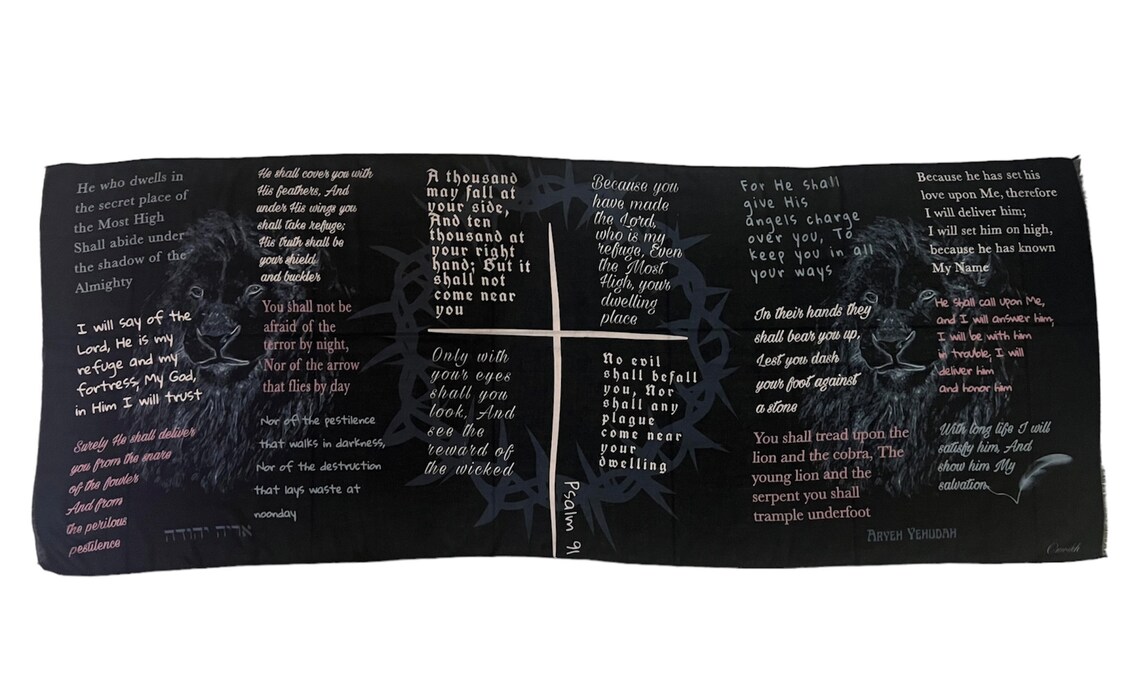 He who dwells in
the secret place of
the Most High
Shall abide under
the shadow of the
Almighty
I will say of the
Lord, He is my
refuge and my
fortress, My God,
in Him I will trust
Surely He shall deliver
you from the snare
of the fowler
And from
the perilous
pestilence
אריה יהודה
He shall cover you with
His feathers, And
under His wings you
shall take refuge;
His truth shall be
your shield
and buckler
You shall not be
afraid of the
terror by night,
Nor of the arrow
that flies by day
Nor of the pestilence
that walks in darkness,
Nor of the destruction
that lays waste at
noonday
A thousand
may fall at
your side,
And ten
thousand at
your right
hand; But it
shall not
come near
you
Only with
your eyes
shall you
look, And
see the
reward of
the wicked
Because you
have made
the Lord,
who is my
refuge, Even
the Most
High, your
dwelling
place
No evil
shall befall
you, Nor
shall any
plague
come near
your
dwelling
Psalm 91
For He shall
give His
angels charge
over you, To
keep you in all
your ways
In their hands they
shall bear you up,
Lest you dash
your foot against
a stone
You shall tread upon the
lion and the cobra, The
young lion and the
serpent you shall
trample underfoot
Because he has set his
love upon Me, therefore
I will deliver him;
I will set him on high,
because he has known
My Name
He shall call upon Me,
and I will answer him;
I will be with him
in trouble, I will
deliver him
and honor him
With long life I will
satisfy him, And
show him My
salvation
Aryeh Yehudah